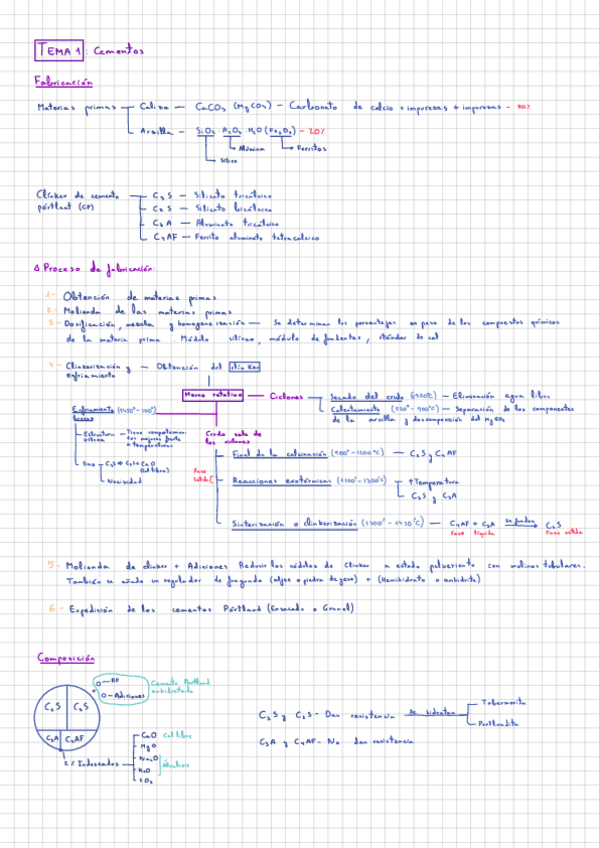 TEMA 1: Cementos
Fabricación
Materias primas — Caliza — CaCO3 (MgCO3) - Carbonato de calcio + impurezas + impurezas - 80%
Arcilla - SiO2 Al2O3 H2O (Fe2O3) - 20%
Alúmina Ferritos
Sílice
Clinker de cemento — C3S — Silicato tricálcico
pórtlant (CP) C2S — Silicato bicálcico
C3A — Aluminato tricálcico
C4AF — Ferrito aluminato tetracalcico
Δ Proceso de fabricación:
1- Obtención de materias primas
2- Molienda de las materias primas
3- Dosificación, mezcla y homogeneización — Se determinan los porcentajes en peso de los compuestos químicos
de la materia prima Módulo silíceo, módulo de fundentes, stándar de cal
4- Clinkerización y — Obtención del clinker
enfriamiento
Horno rotativo — Ciclones — Secado del crudo (<550ºC) — Eliminación agua libre
Calentamiento (550º-900ºC) — Separación de los componentes
de la arcilla y descomposición del MgCO3
Enfriamiento (1450º-100º)
brusco
Crudo sale de
los ciclones
Estructura — Tiene comportamien-
tos mejores frente
a temperaturas
Sino
Nocividad
Fase
sólida
Final de la calcinación (900º-1200ºC) — C2S y C4AF
Reacciones exotérmicas (1200º-1300º) — ↑Temperatura
C2S y C3A
Sinterización o clinkerización (1300º-1450ºC) — C4AF + C3A se funden C3S
Fase líquida Fase sólida
5- Molienda de clinker + Adiciones Reducir los nódulos de Clinker a estado pulverento con molinos tubulares.
También se añade un regulador de fraguado (aljez o piedra de yeso) + (Hemihidrato o anhidrita)
6- Expedición de los cementos Pórtland (Ensacado o Granel)
Composición
AF
+
Adiciones
Cemento Portland
anhidratado
C3S C2S
C3A C4AF
C3S y C2S - Dan resistencia se hidratan Tobermorita
Portlandita
C3A y C4AF - No dan resistencia
2% Indeseados
CaO Cal libre
MgO
Na2O
K2O
Alcalinos